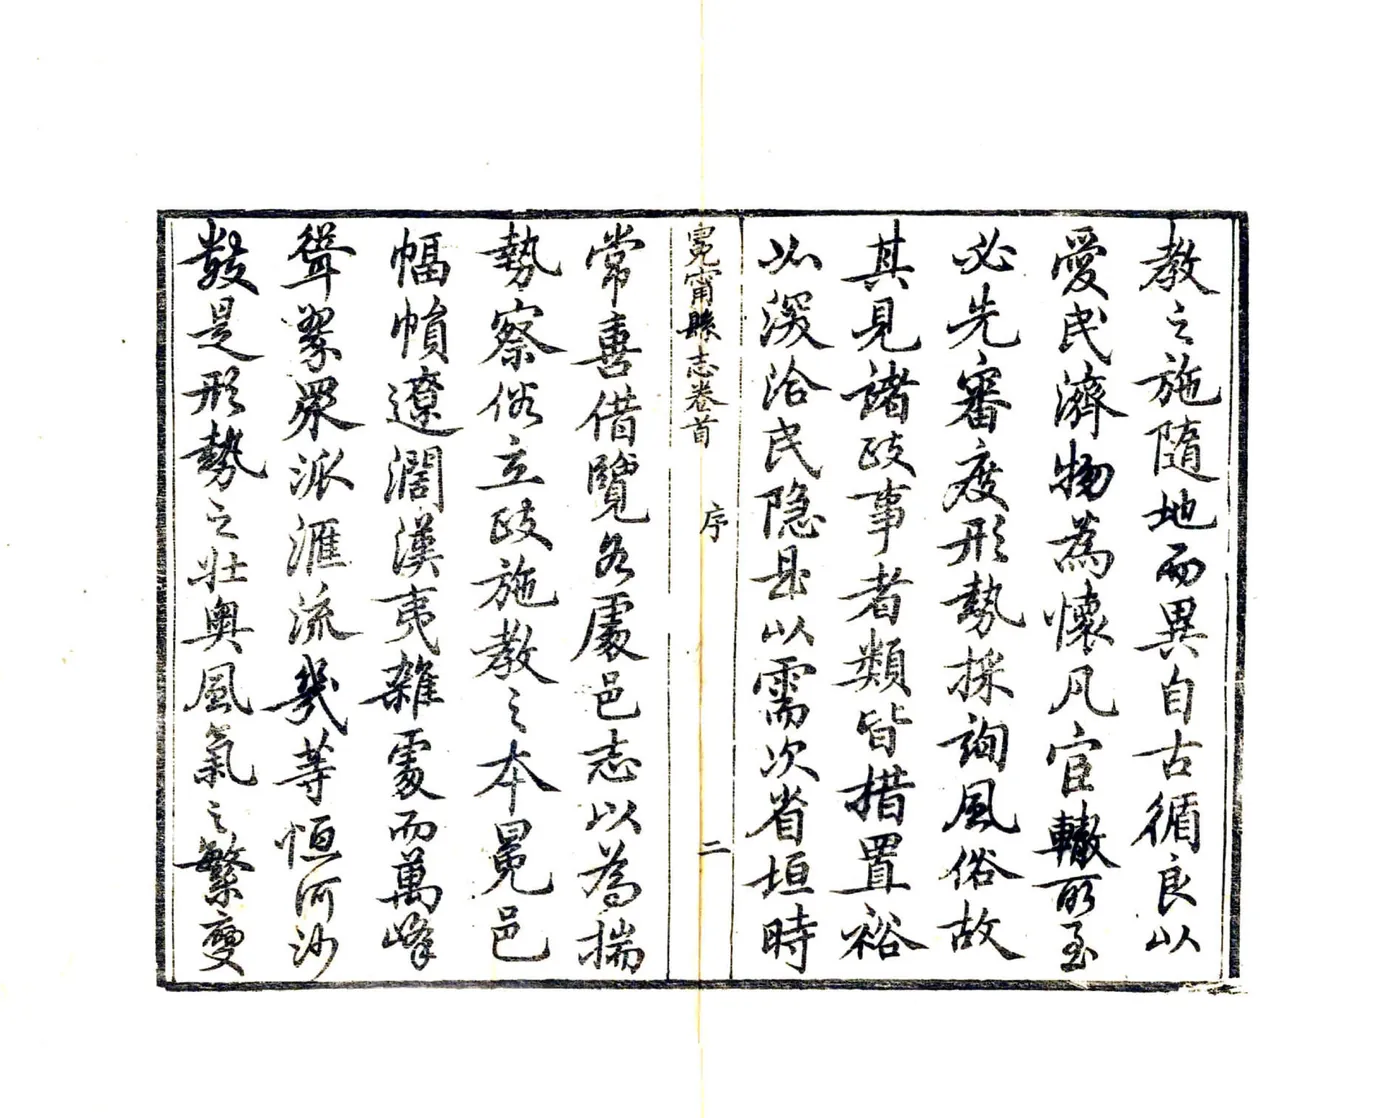 教之施隨地而異自古循良以
愛民濟物為懷凡官轍所至
必先審度形勢採詢風俗故
其見諸政事者類皆措置裕
如深洽民隱以需次省垣時
冕甯縣志卷首 序 二
常喜借覽各處邑志以為揣
勢察俗立政施教之本冕邑
幅幀遼濶漢夷雜處而萬峰
聳翠眾派滙流幾等恒河沙
數是形勢之壯奧風氣之繁變